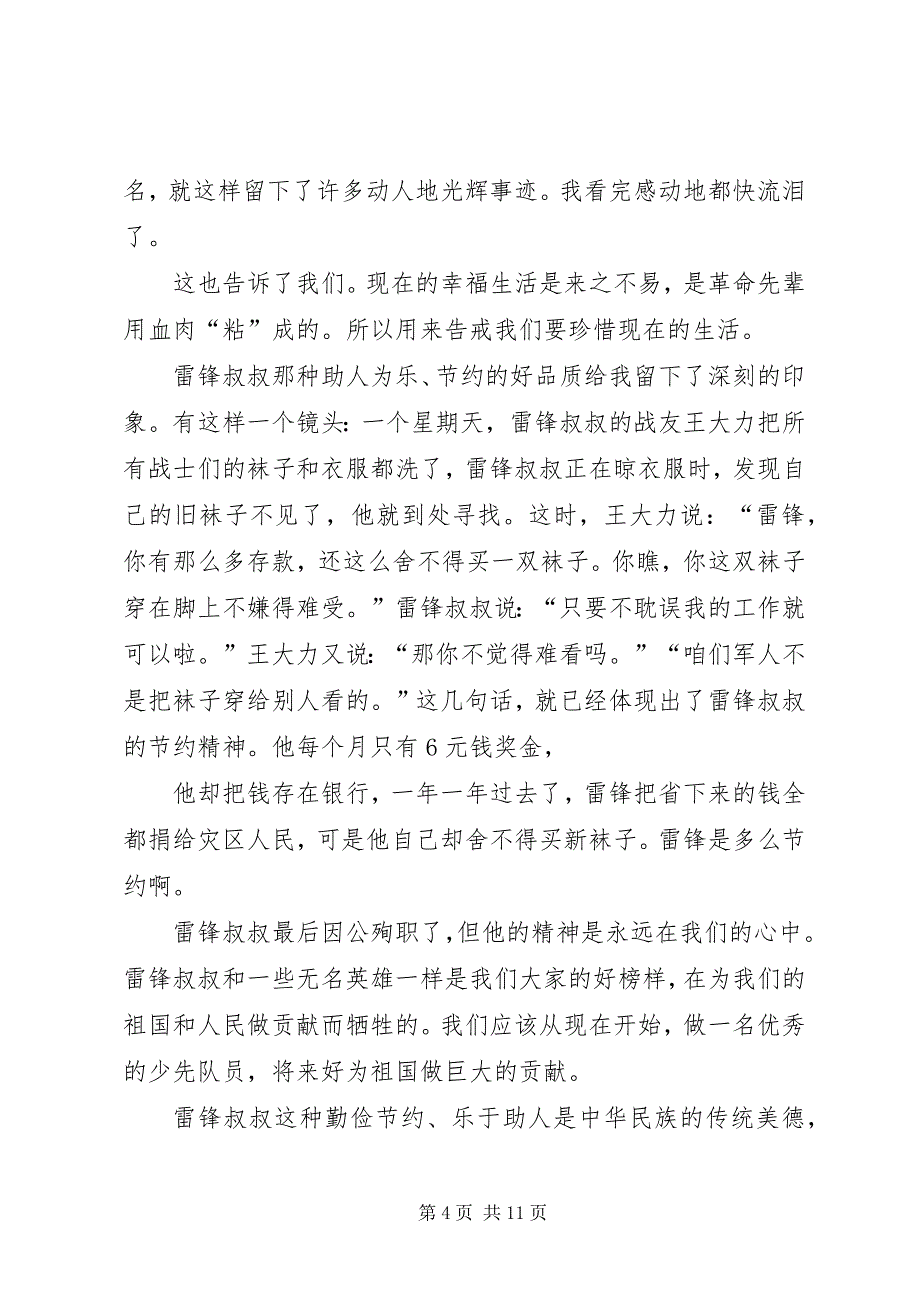 名，就这样留下了许多动人地光辉事迹。我看完感动地都快流泪
了。
这也告诉了我们。现在的幸福生活是来之不易，是革命先辈
用血肉“粘”成的。所以用来告戒我们要珍惜现在的生活。
雷锋叔叔那种助人为乐、节约的好品质给我留下了深刻的印
象。有这样一个镜头：一个星期天，雷锋叔叔的战友王大力把所
有战士们的袜子和衣服都洗了，雷锋叔叔正在晾衣服时，发现自
己的旧袜子不见了，他就到处寻找。这时，王大力说：“雷锋，
你有那么多存款，还这么舍不得买一双袜子。你瞧，你这双袜子
穿在脚上不嫌得难受。”雷锋叔叔说：“只要不耽误我的工作就
可以啦。”王大力又说：“那你不觉得难看吗。”“咱们军人不
是把袜子穿给别人看的。”这几句话，就已经体现出了雷锋叔叔
的节约精神。他每个月只有 6 元钱奖金，
他却把钱存在银行，一年一年过去了，雷锋把省下来的钱全
都捐给灾区人民，可是他自己却舍不得买新袜子。雷锋是多么节
约啊。
雷锋叔叔最后因公殉职了，但他的精神是永远在我们的心中。
雷锋叔叔和一些无名英雄一样是我们大家的好榜样，在为我们的
祖国和人民做贡献而牺牲的。我们应该从现在开始，做一名优秀
的少先队员，将来好为祖国做巨大的贡献。
雷锋叔叔这种勤俭节约、乐于助人是中华民族的传统美德，
第 4 页 共 11 页